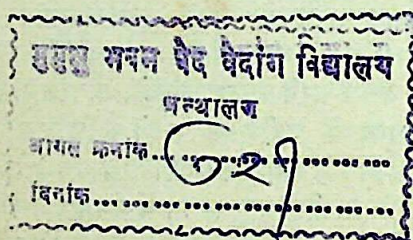 मुमुक्षु भवन वेद वेदांग विद्यालय
ग्रन्थालय
आगत क्रमांक......................
दिनांक.................................